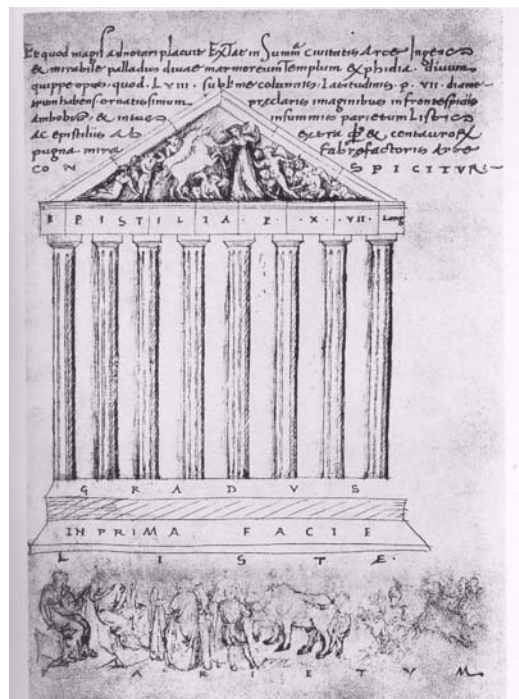 Et quod magis adnotari placuit Extat in Summa civitatis Arce Ingens
& mirabile palladis divae marmoreum Templum & phidiae divum
quippe opus. quod. LVIII. sublime columnis. Latitudinis. p. VII. diame-
trum habens ornatissimum praeclaris imaginibus in frontespiciis
Ambobus. & intus insummis parietum Listis
ac epistiliis Ab extra & centauror
pugna mira fabrefactoris Arte
CON SPICITUR
EPISTILIA. P. X. VII. Long
GRADVS
IN PRIMA FACIE
LISTE.
PARIETVM